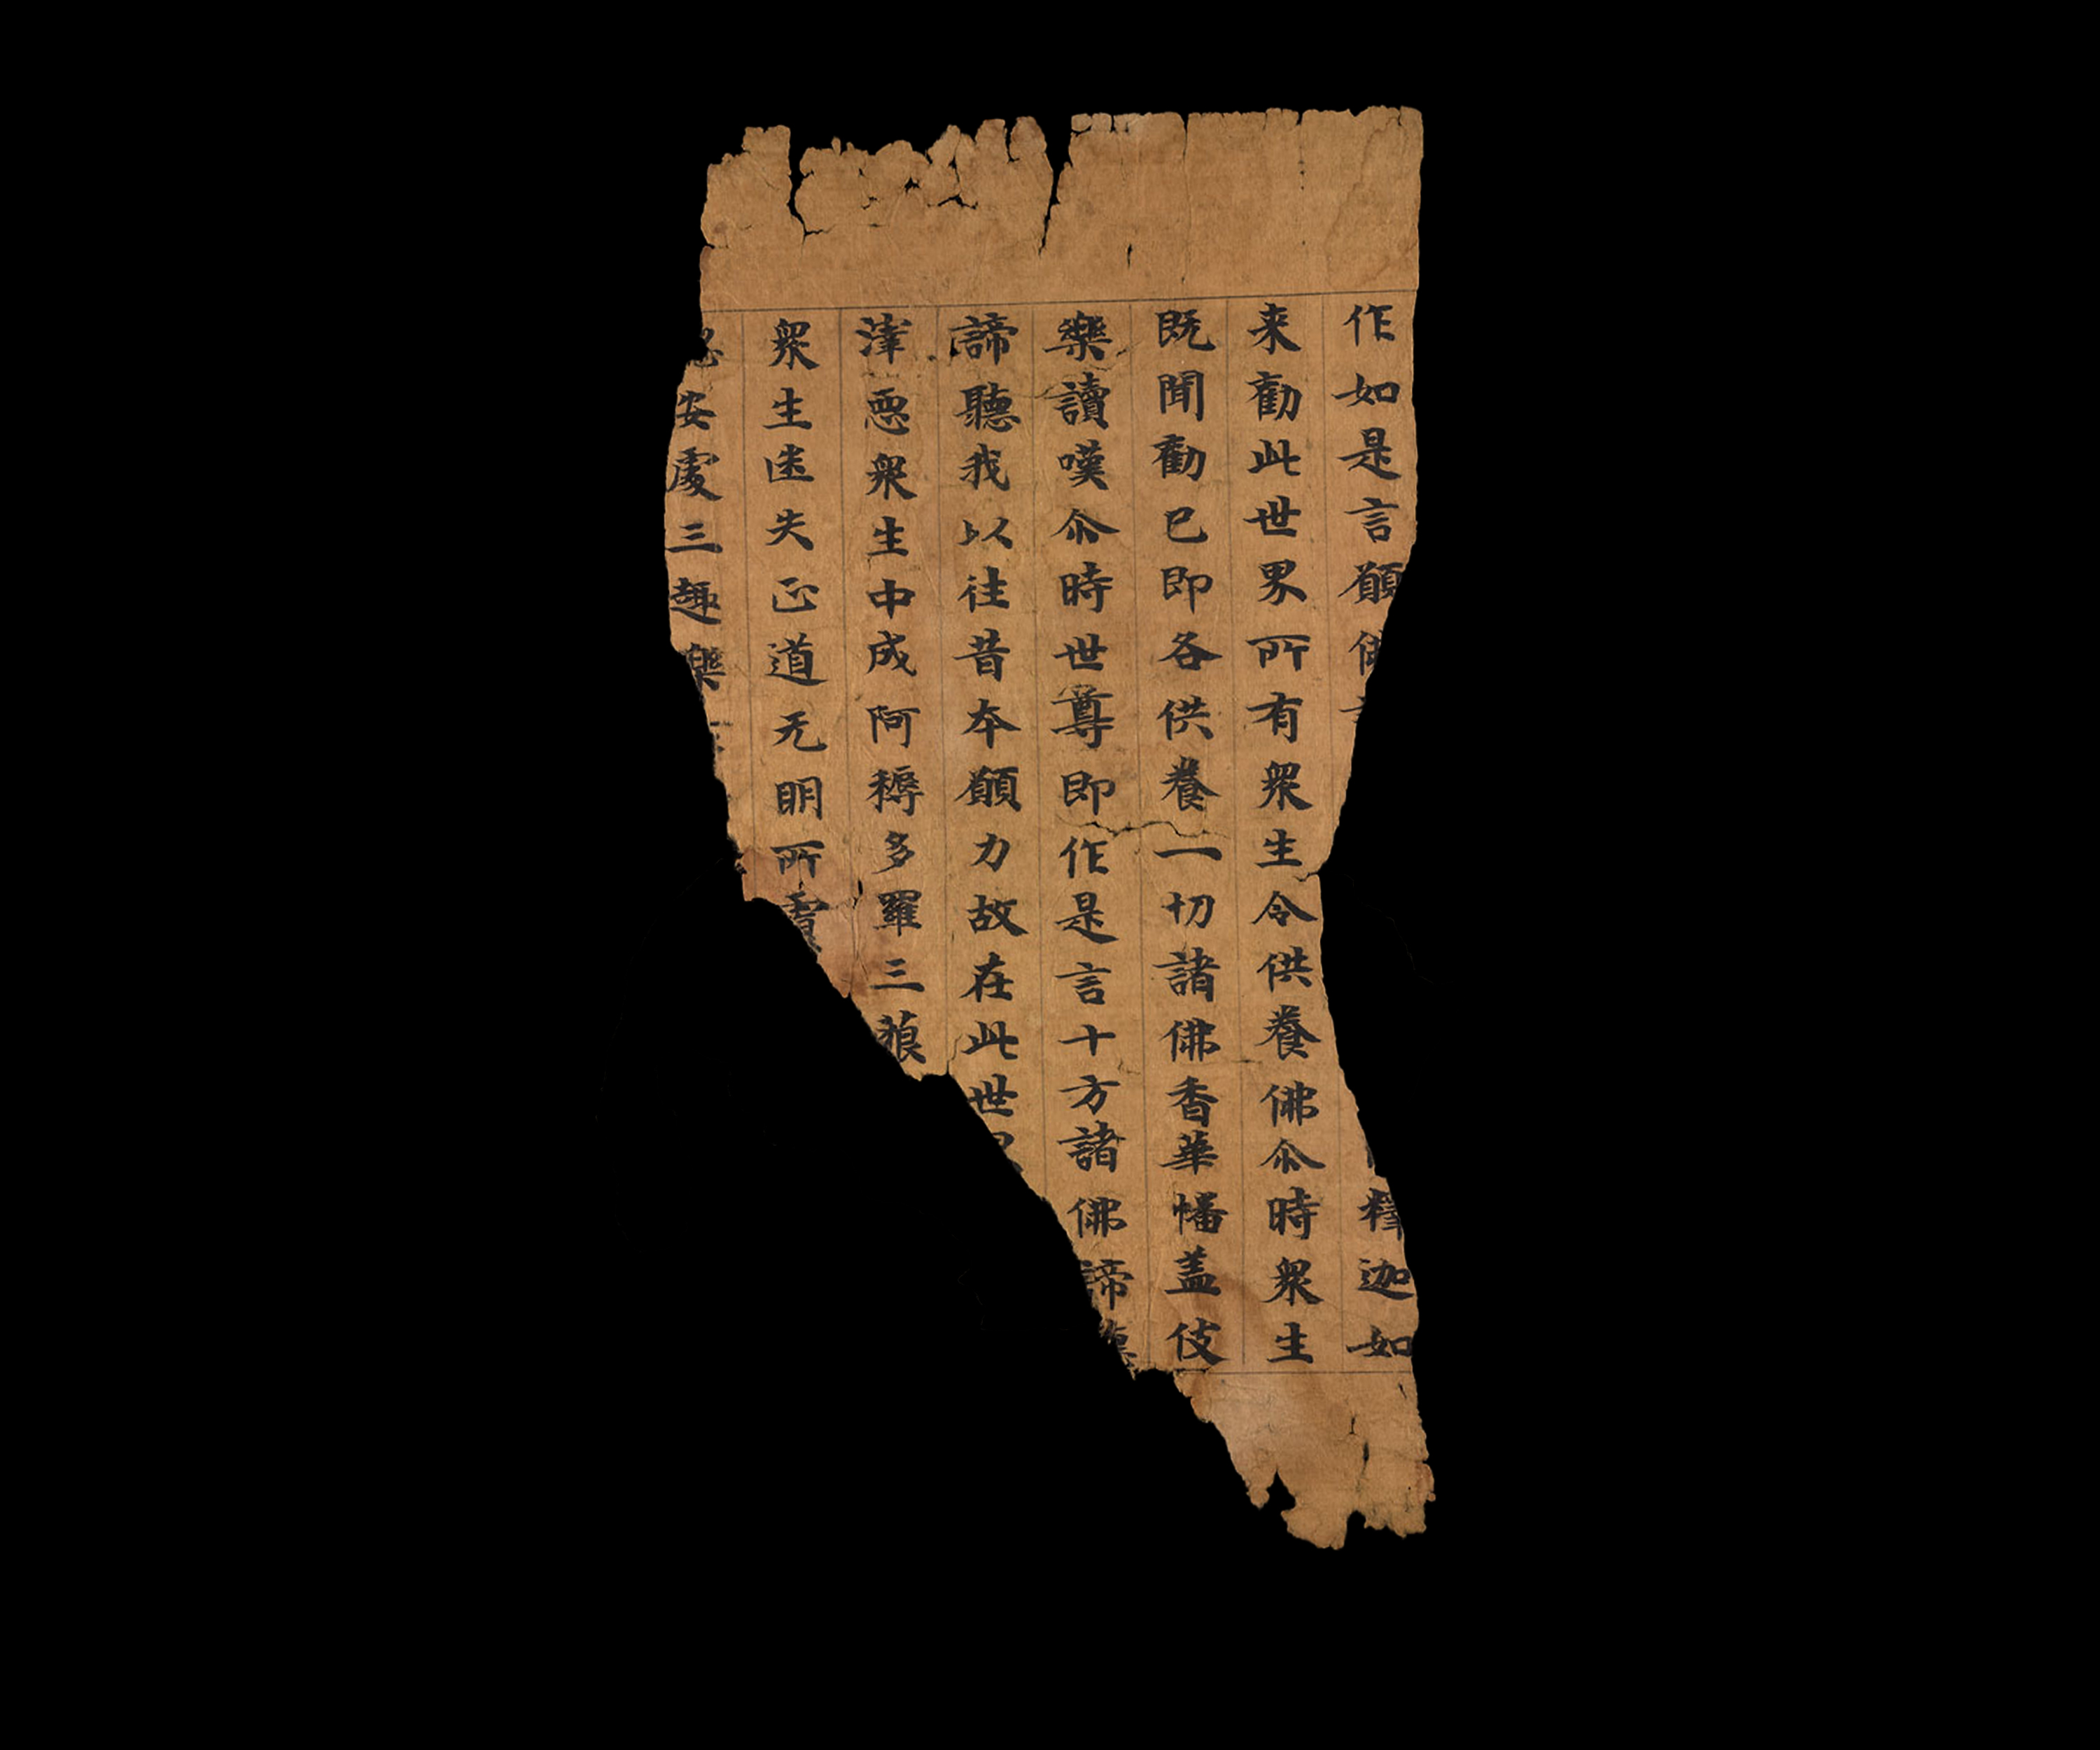 作如是言願釋迦如
来勸此世界所有衆生令供養佛尒時衆生
既聞勸已即各供養一切諸佛香華幡盖伎
樂讀嘆尒時世尊即作是言十方諸佛諦
諦聽我以往昔本願力故在此世
滓惡衆生中成阿耨多羅三藐
衆生迷失正道无明所覆
安處三趣樂